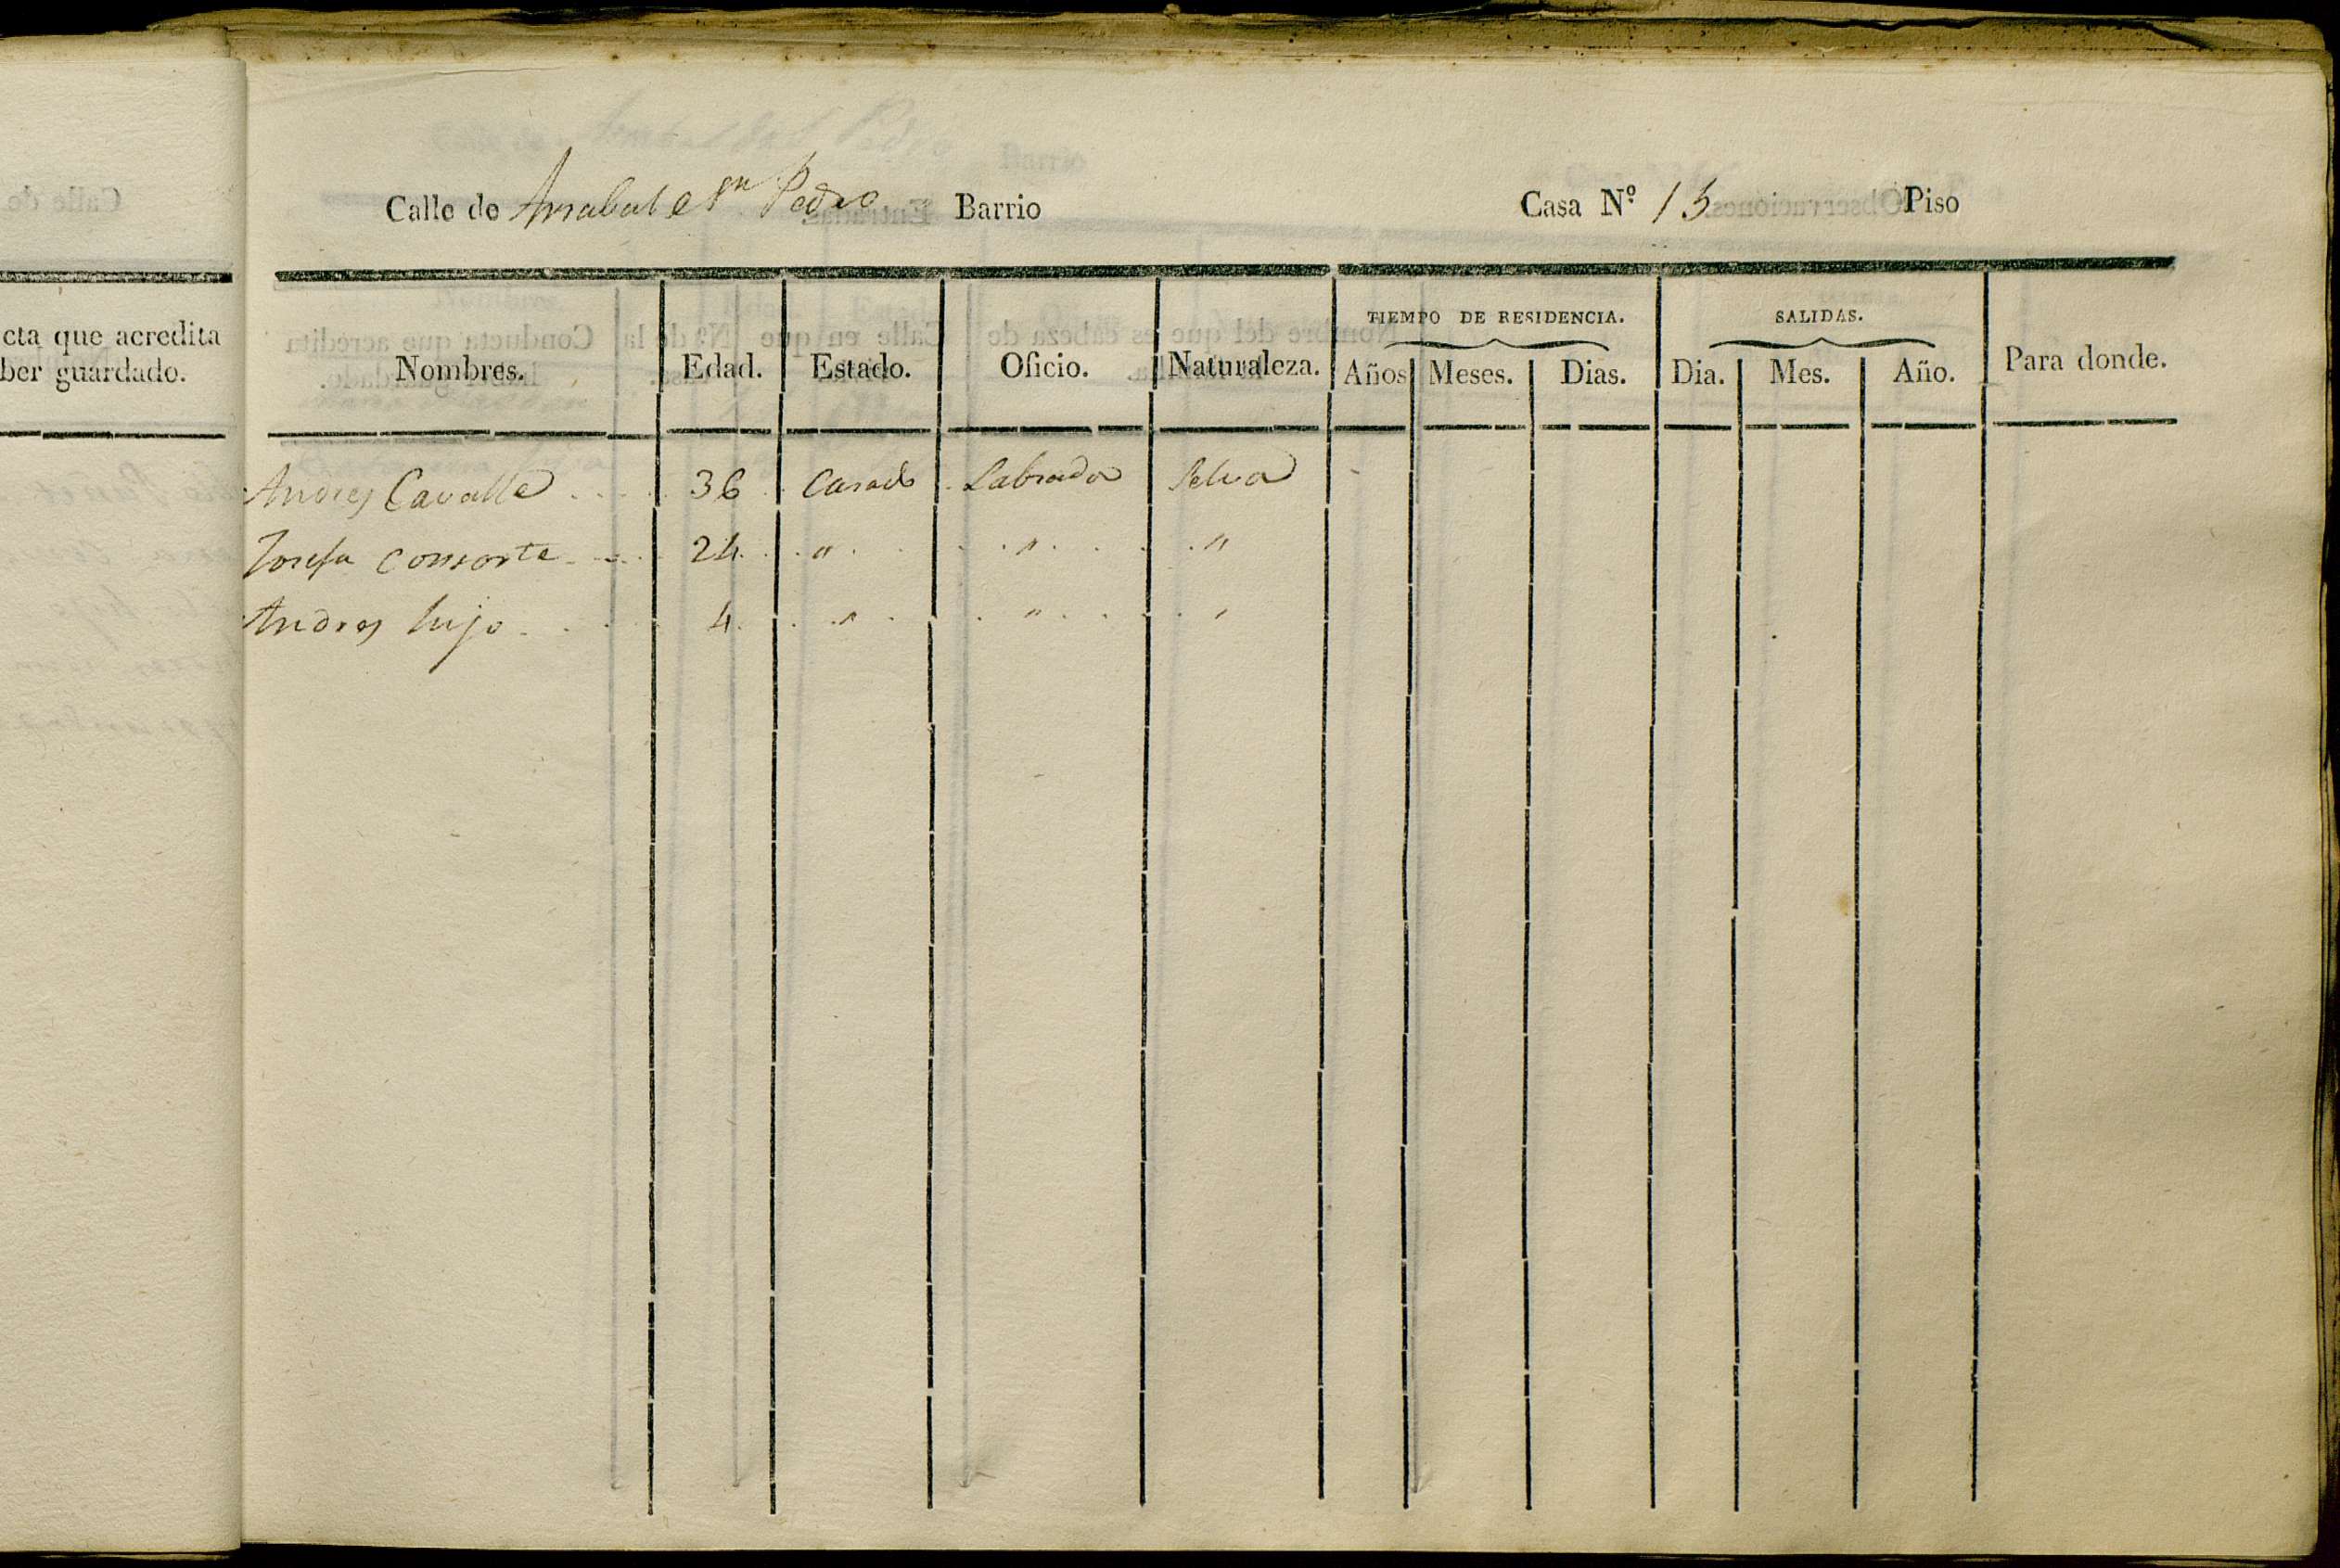 Calle de Arrabal e Sn Pedro Barrio Casa Nº 15 Piso
cta que acredita
ber guardado.
TIEMPO DE RESIDENCIA. SALIDAS.
Nombres. Edad. Estado. Oficio. Naturaleza. Años Meses. Dias. Dia. Mes. Año. Para donde.
Andres Cavalle 36 Casado Labrador Selva
Josefa consorte 24 " " "
Andres hijo 4 " " "